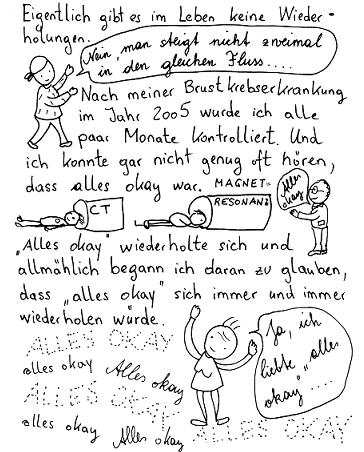 Eigentlich gibt es im Leben keine Wieder-
holungen.
Nein, man steigt nicht zweimal
in den gleichen Fluss.....
Nach meiner Brustkrebserkrankung
im Jahr 2005 wurde ich alle
paar Monate kontrolliert. Und
ich konnte gar nicht genug oft hören,
dass alles okay war.
MAGNET-
RESONANZ
CT
Alles
okay
„Alles okay" wiederholte sich und
allmählich begann ich daran zu glauben,
dass „alles okay" sich immer und immer
wiederholen würde.
ALLES OKAY
alles okay Alles okay
ALLES OKAY
alles okay Alles okay ALLES OKAY
Ja, ich
liebte „alles
okay"....